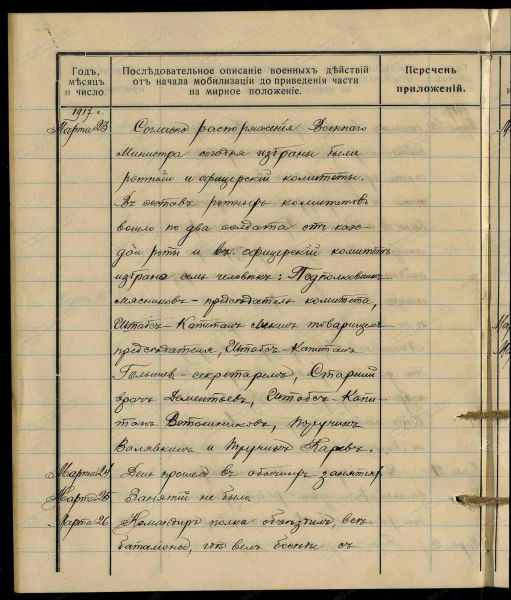 Годъ, мѣсяцъ и число.
Послѣдовательное описаніе военныхъ дѣйствій
отъ начала мобилизаціи до приведенія части
на мирное положеніе.
Перечень
приложеній.
1917 г.
Марта 23 Согласно распоряженія Военнаго
Министра сегодня избраны были
ротный и офицерскій комитеты.
Въ составъ ротныхъ комитетовъ
вошло по два солдата отъ каж-
дой роты и въ офицерскій комитетъ
избрано семь человѣкъ: Подполковникъ
Мясниковъ – предсѣдатель комитета,
Штабсъ-Капитанъ товарищемъ
предсѣдателя, Штабсъ-Капитанъ
секретаремъ, Старшій
врачъ Дементьевъ, Штабсъ-Капи-
танъ Ветошниковъ, Поручикъ
и Поручикъ
Марта 24 День прошелъ въ обычныхъ занятіяхъ
Марта 25 Занятій не было
Марта 26 Командиръ полка объѣздилъ всѣ
баталіоны, гдѣ велъ бесѣды съ